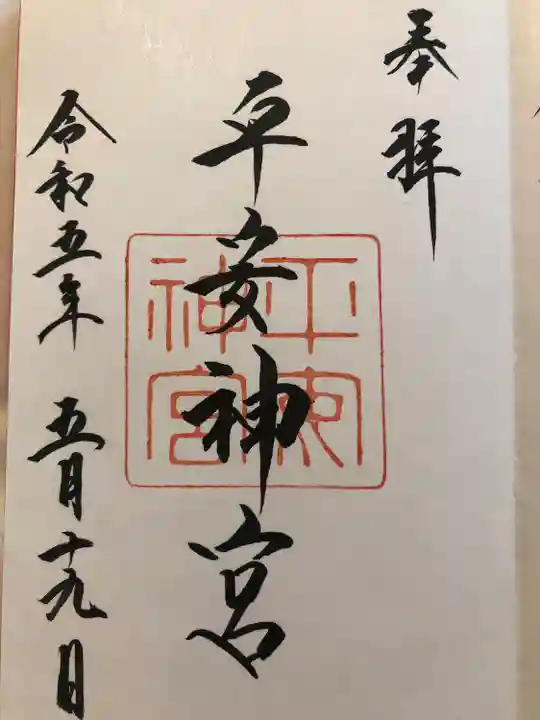 奉拝
平安神宮
平安神宮
令和五年 五月十九日